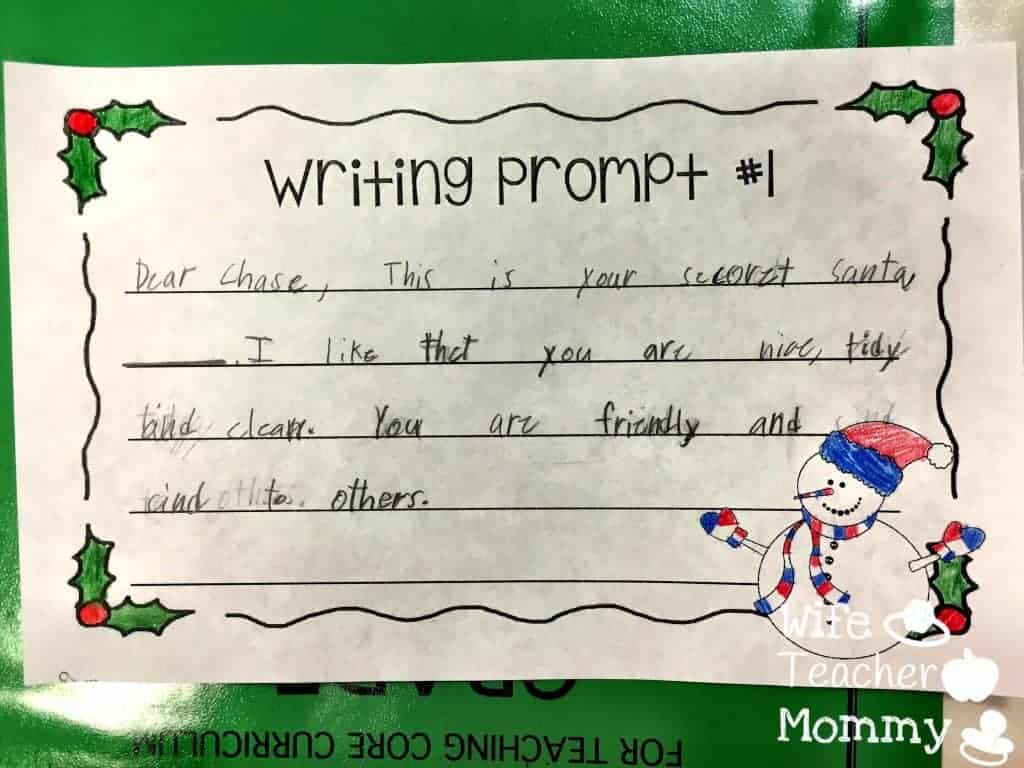 Writing Prompt #1
Dear Chase, This is your secoret santa
______. I like thet you are nice, tidy
and clean. You are friendly and
kind to others.
Wife
Teacher
Mommy
GRADE
FOR TEACHING CORE CURRICULUM